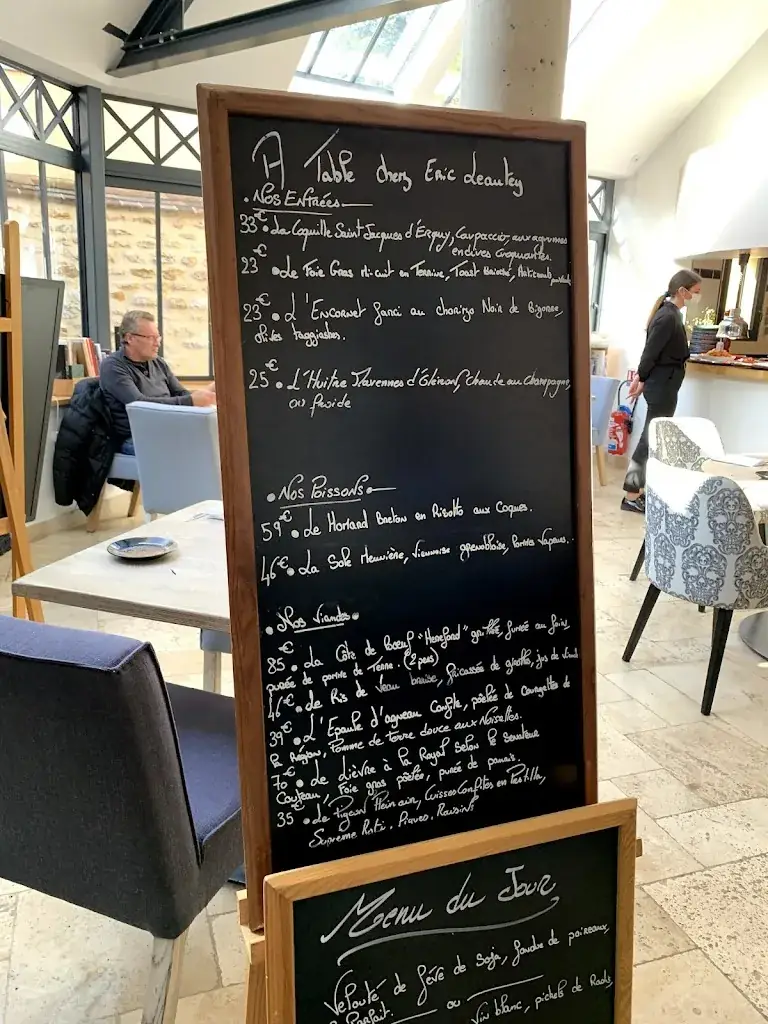 A Table chez Eric Leautey
• Nos Entrées
33€ • La Coquille Saint Jacques d'Erquy, Carpaccio, aux agrumes
endives croquantes.
23€ • Le Foie Gras Mi-cuit en Terrine, Toast Brioché,
23€ • L'Encornet farci au chorizo Noir de Bigorre,
olives taggiashes.
25€ • L'Huitre d'Glénan, chaude au Champagne,
ou froide
• Nos Poissons
59€ • Le Homard Breton en Risotto aux Coques.
46€ • La Sole Meunière, Viennoise grenobloise, Pommes Vapeurs.
• Nos Viandes •
85€ • La Côte de Boeuf "Hereford" grillée, fumée au foin,
purée de pomme de Terre. (2 pers)
46€ • Le Ris de Veau braisé, fricassée de girolles, jus de
39€ • L'Epaule d'agneau Confite, poêlée de Courgettes de
la Région, Pomme de terre douce aux Noisettes.
70€ • Le Lièvre à la Royal Selon le Senateur
Couteau, Foie gras poêlée, purée de panais.
35€ • Le Pigeon Plein air, Cuisses Confites en Pastilla,
Supreme Roti, Raisins
Menu du Jour
Velouté de fève de Soja, fondue de poireaux,
Parfait. ou
Vin blanc, pickels de Radis